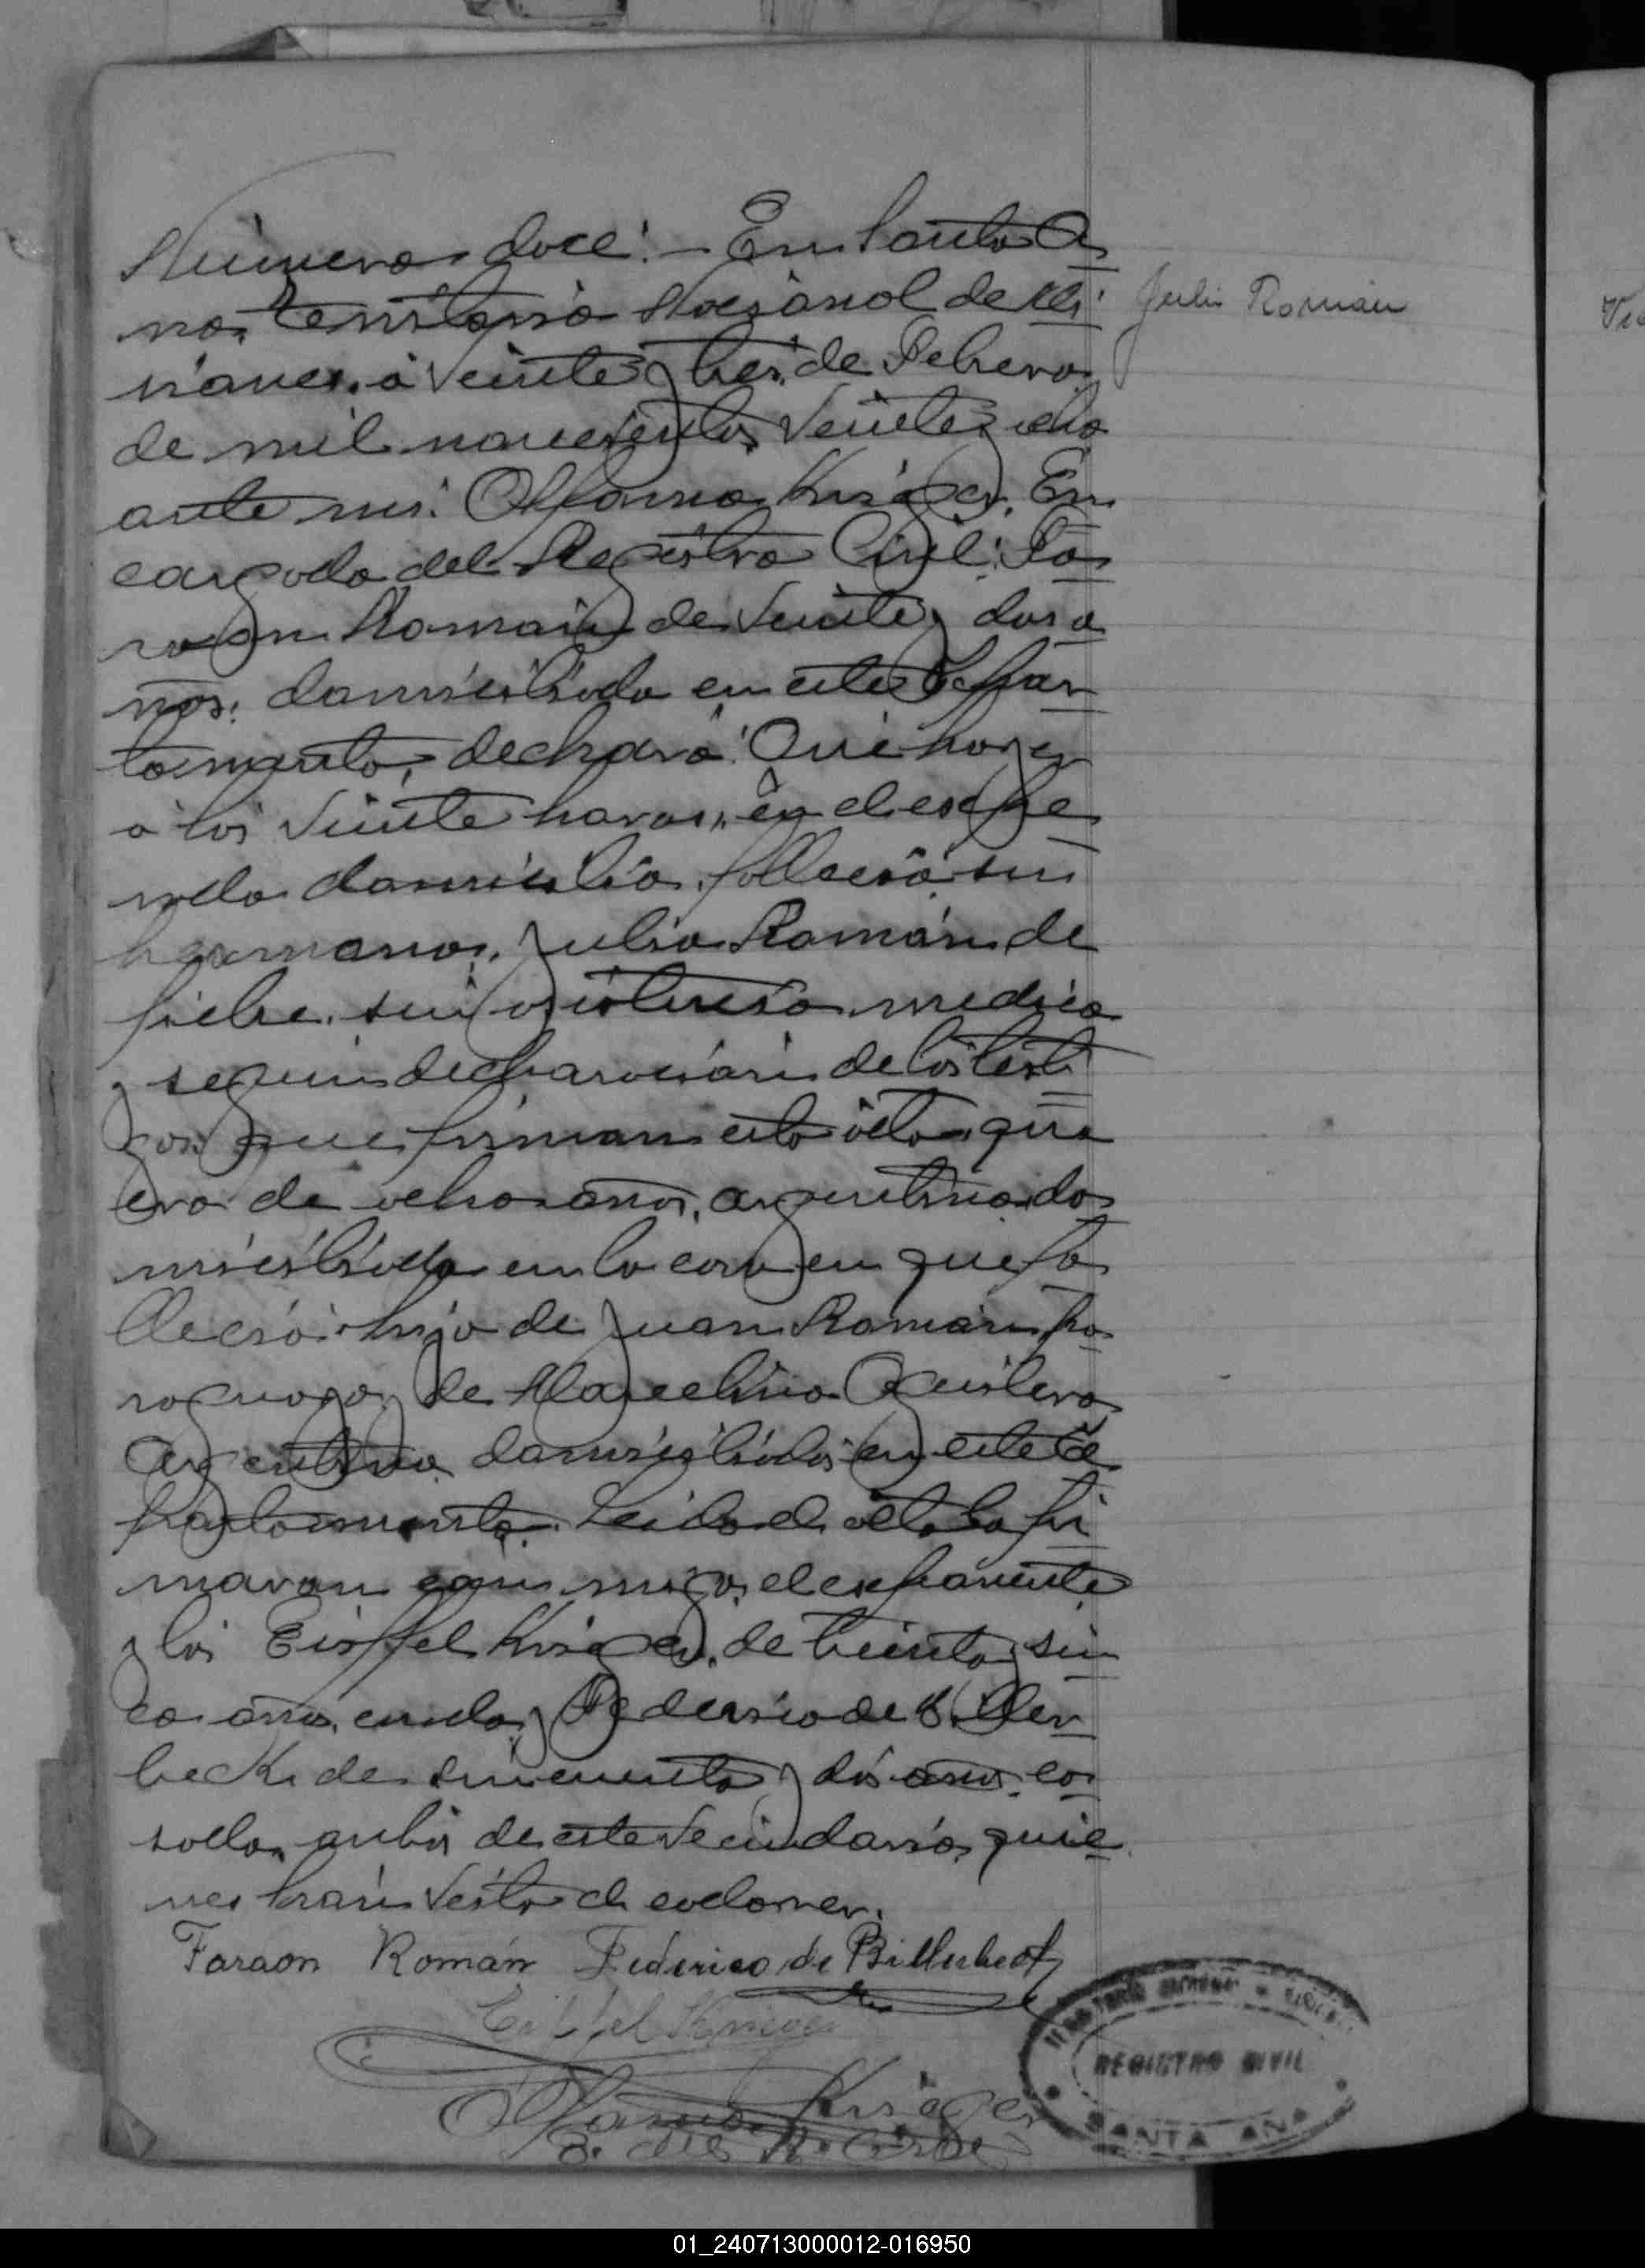 Número doce: - En Santa A
na, Territorio Nacional de Mi
siones, a veinte y tres de Febrero
de mil novecientos veinte y ocho
ante mi: Alfonso Krieger, En
cargado del Registro Civil: Fa
raon Román de veinte y dos a
ños: domiciliado en este Depar
tamento, declaró: Que hoy
a las veinte horas, en el expre
sado domicilio, falleció su
hermano, Julio Román de
fiebre, sin asistencia medica
y segun declaración de los testi
gos que firman esta acta, que
era de ocho años, argentino do
miciliado en la casa en que fa
lleció: hijo de Juan Román pa
raguayo, y de Marcelina
Argentina domiciliados en este De
partamento. Leida el acta la fir
maron conmigo, el exponente
y los Eiffel Krieger, de treinta y sin
co años, casado, y Federico de Biller
beck de sincuenta y dos años, ca
sado, ambos de este vecindario, quie
nes han visto el cadaver.
Faraon Román Federico de Billerbeck
Eiffel Krieger
Alfonso Krieger
E. del R. Civil
Julio Román
REGISTRO CIVIL
SANTA ANA
01_240713000012-016950